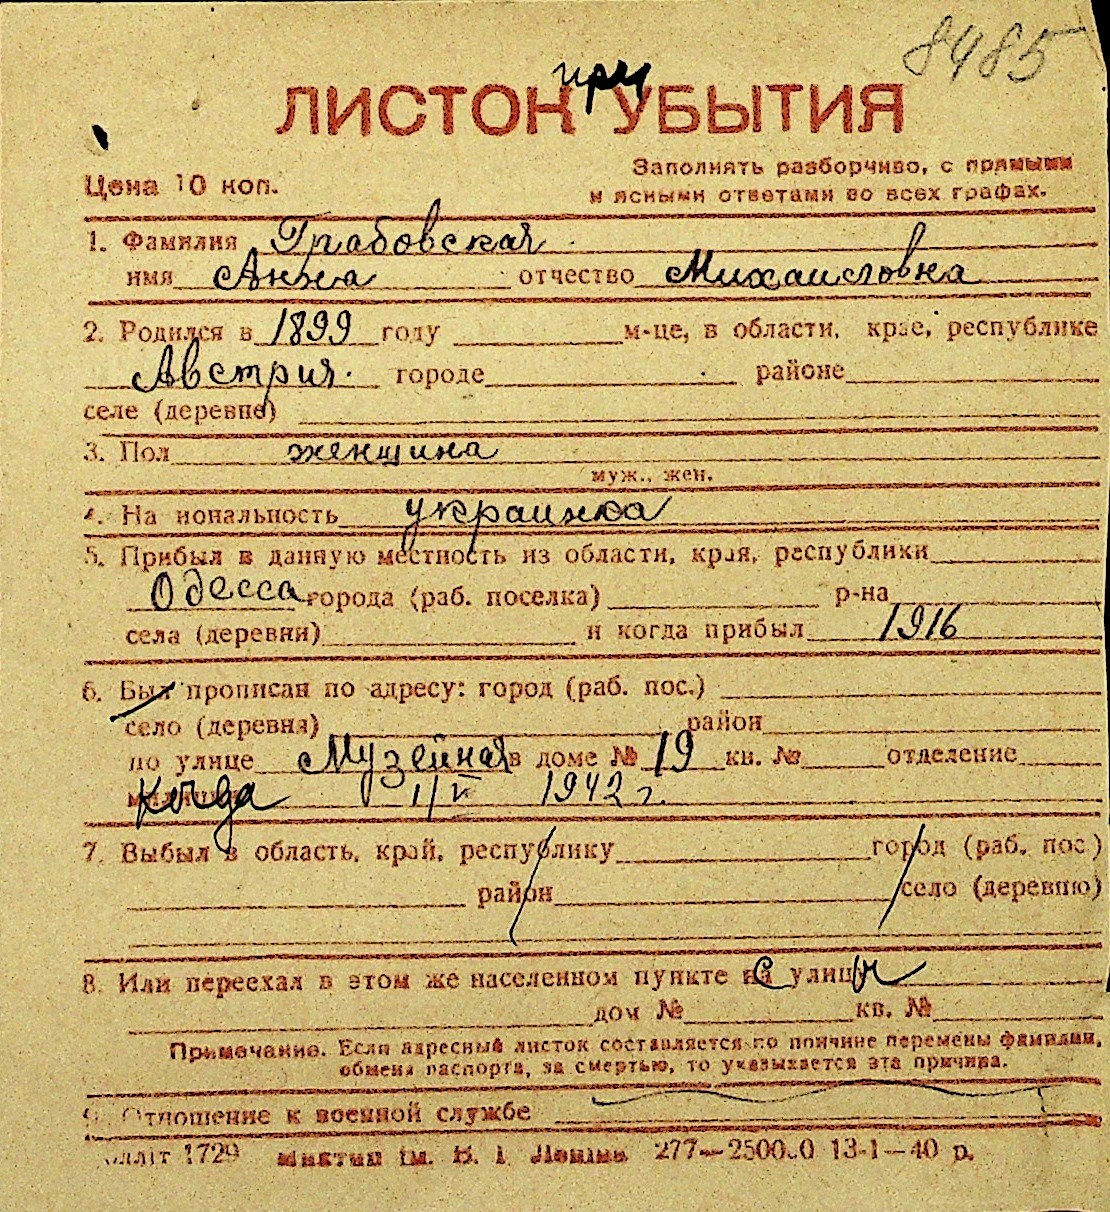 8485
при
ЛИСТОК УБЫТИЯ
Цена 10 коп.
Заполнять разборчиво, с прямыми
и ясными ответами во всех графах.
1. Фамилия Грабовская
имя Анна отчество Михайловна
2. Родился в 1899 году м-це, в области, крае, республике
Австрия. городе районе
селе (деревне)
3. Пол женщина
муж., жен.
4. Национальность украинка
5. Прибыл в данную местность из области, края, республики
Одесса города (раб. поселка) р-на
села (деревни) и когда прибыл 1916
6. Был прописан по адресу: город (раб. пос.)
село (деревня) район
по улице Музейная в доме № 19 кв. № отделение
Когда 1/V 1942 г.
7. Выбыл в область, край, республику город (раб. пос.)
район село (деревню)
8. Или переехал в этом же населенном пункте с улицы
дом № кв. №
Примечание. Если адресный листок составляется по причине перемены фамилии,
обмена паспорта, за смертью, то указывается эта причина.
9. Отношение к военной службе
1729 Ім. В. І. Леніна 277—250000 13-1—40 р.